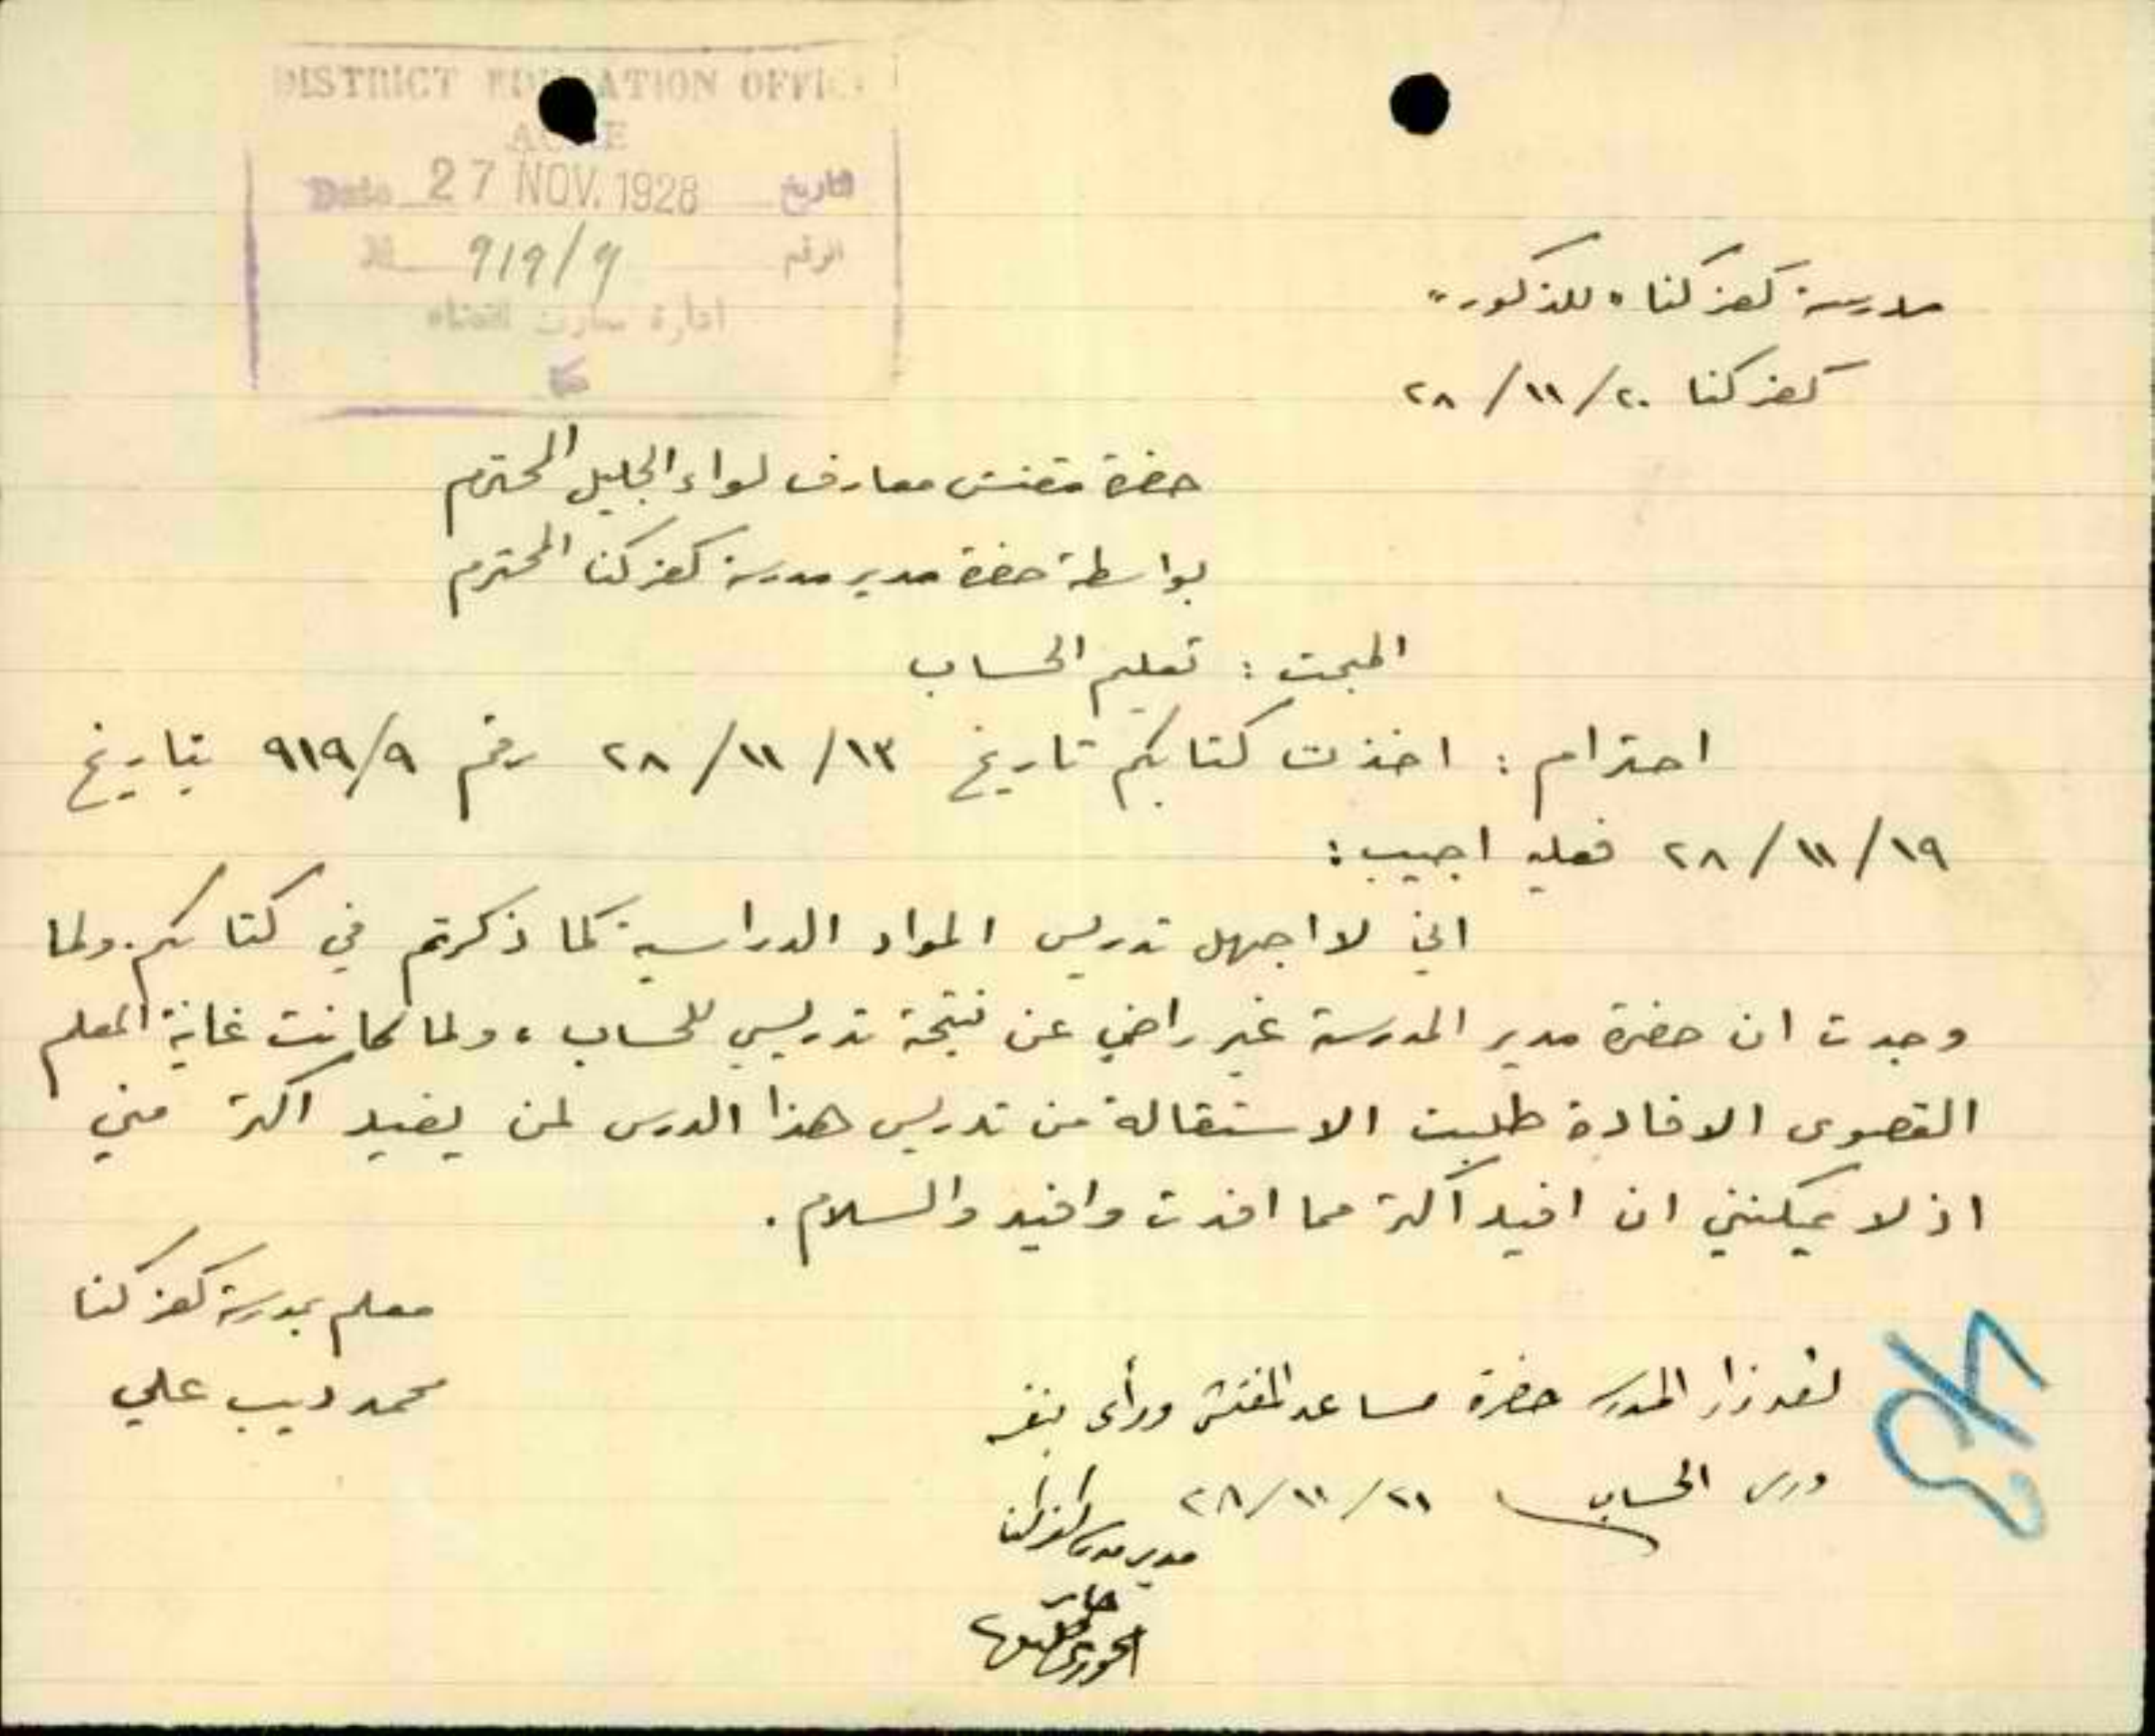 DISTRICT EDUCATION OFFICE
ACRE
Date 27 NOV. 1928 التاريخ
No 919/9 الرقم
ادارة معارف القضاء
عكا
مدرسة كفركنا "للذكور"
كفركنا ٢٨/١١/٢٠
حضرة مفتش معارف لواء الجليل المحترم
بواسطة حضرة مدير مدرسة كفركنا المحترم
المبحث : تعليم الحساب
احترام : اخذت كتابكم تاريخ ٢٨/١١/١٣ رقم ٩١٩/٩ بتاريخ
٢٨/١١/١٩ فعليه اجيب :
اني لا اجهل تدريس المواد الدراسية كما ذكرتم في كتابكم. ولما
وجدت ان حضرة مدير المدرسة غير راضي عن نتيجة تدريسي للحساب ، ولما كانت غاية المعلم
القصوى الافادة طلبت الاستقالة من تدريس هذا الدرس لمن يفيد اكثر مني
اذ لا يمكنني ان افيد اكثر مما افدت وافيد والسلام .
معلم بمدرسة كفركنا
محمد ديب علي
لقد زار المدرسة حضرة مساعد المفتش ورأى بنفسه
درس الحساب ٢٨/١١/٢١
مدير مدرسة كفركنا
الخوري